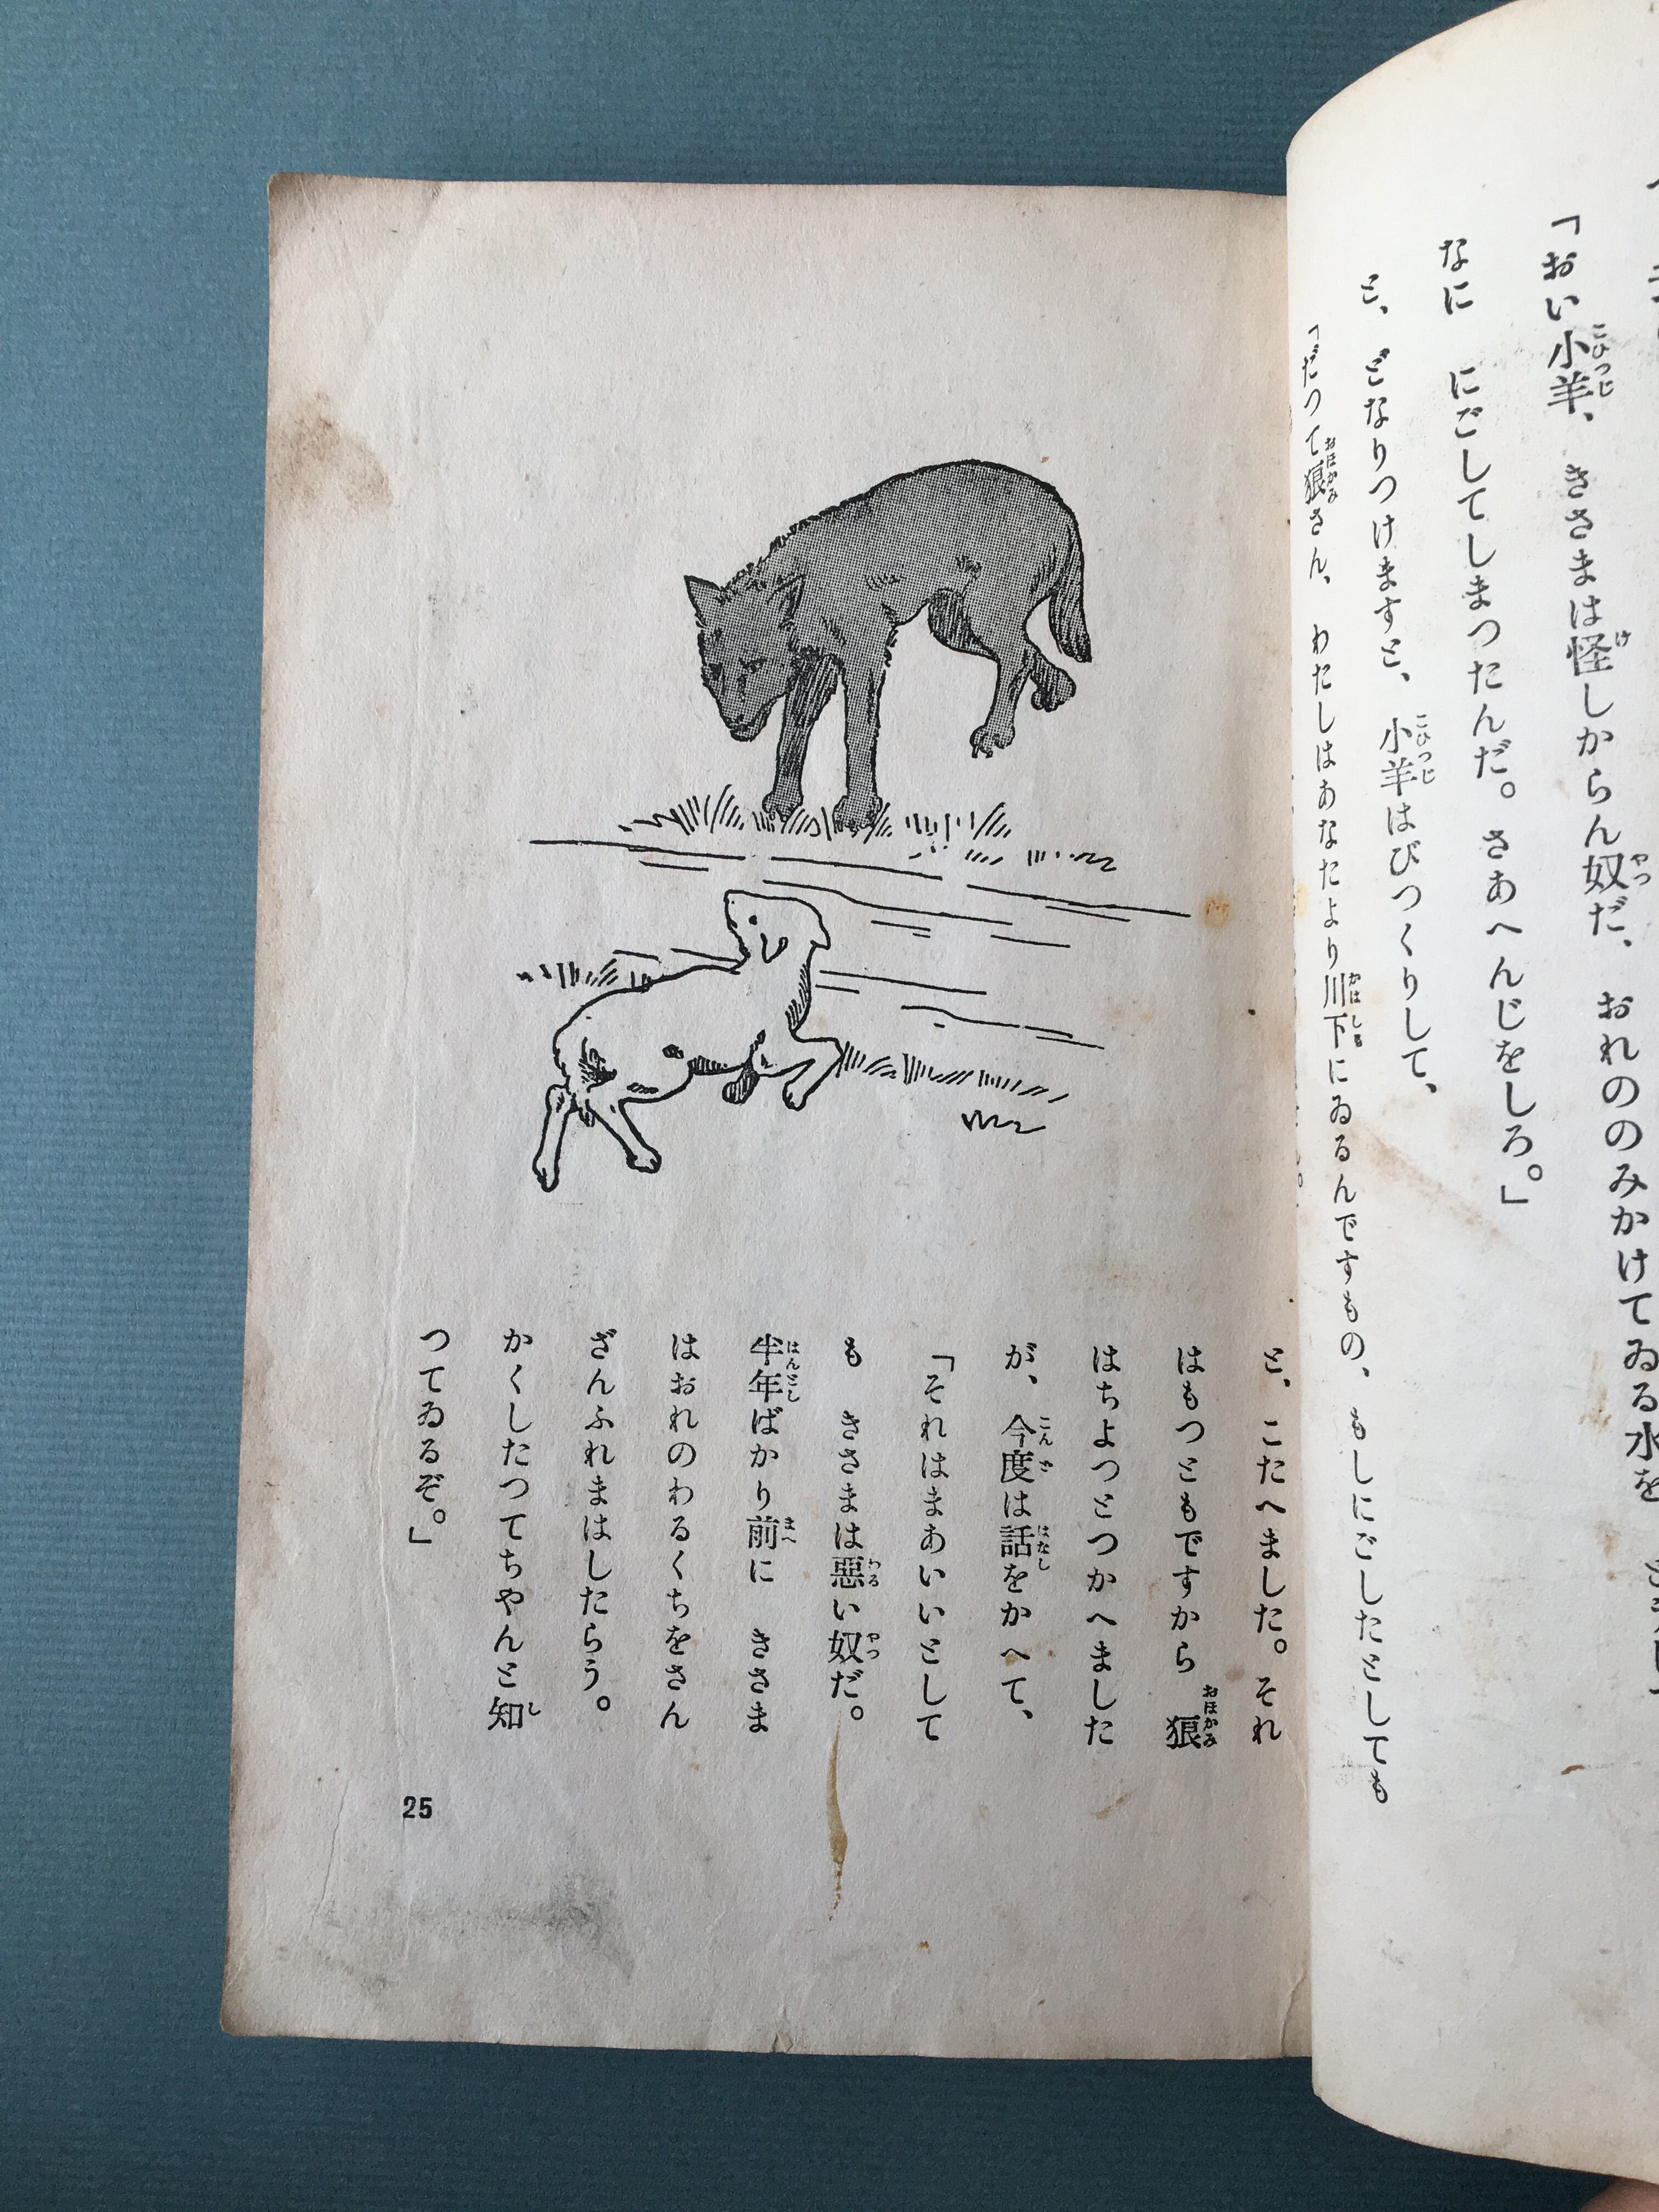 「おい小羊、きさまは怪しからん奴だ、おれののみかけてゐる水を
なに にごしてしまつたんだ。さあへんじをしろ。」
と、どなりつけますと、小羊はびつくりして、
「だつて狼さん、わたしはあなたより川下にゐるんですもの、もしにごしたとしても
と、こたへました。それ
はもつともですから 狼
はちよつとつかへました
が、今度は話をかへて、
「それはまあいいとして
も きさまは惡い奴だ。
半年ばかり前に きさま
はおれのわるくちをさん
ざんふれまはしたらう。
かくしたつてちやんと知
つてゐるぞ。」
25